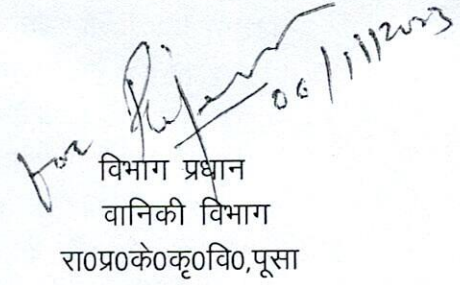 for
06/11/2023
विभाग प्रधान
वानिकी विभाग
रा0प्र0के0कृ0वि0,पूसा